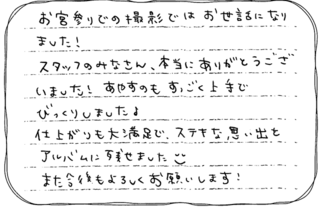 お宮参りでの撮影では お世話になり
ました!
スタッフのみなさん、本当にありがとうござ
いました! あやすのも すっごく上手で
びっくりしました♪
仕上がりも大満足で、ステキな思い出を
アルバムに残せました
また今後もよろしくお願いします!